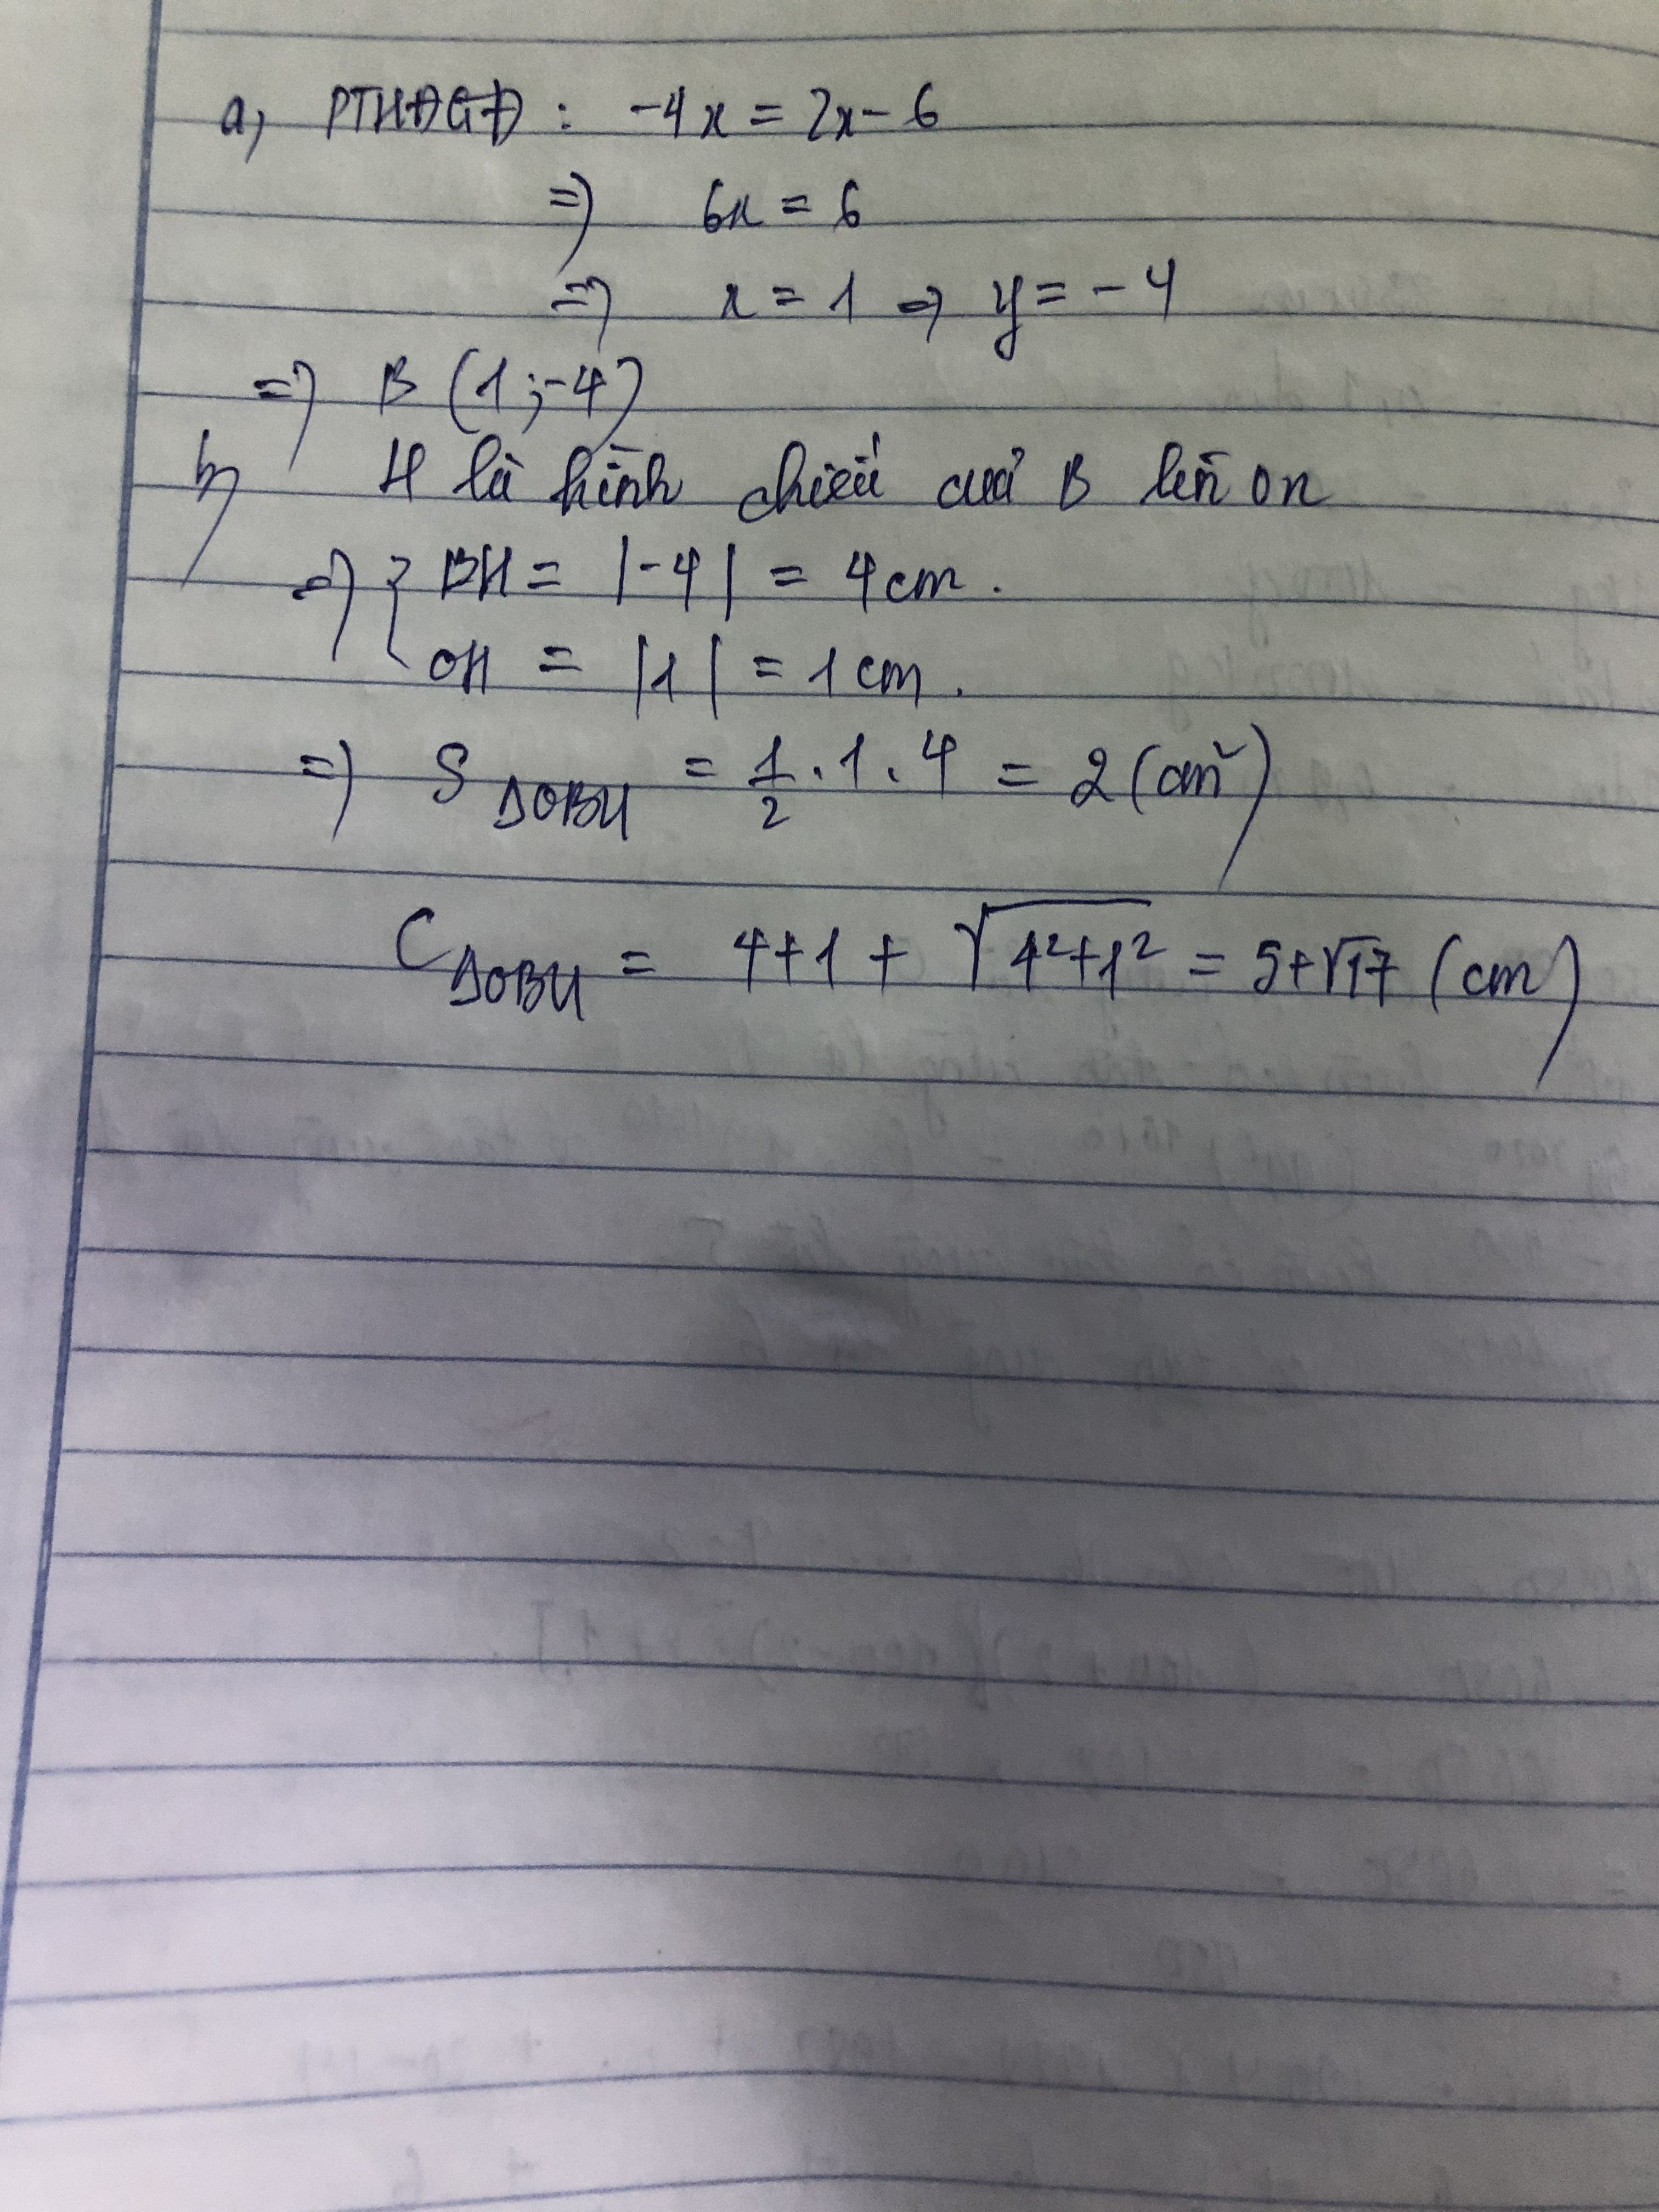 a, PTHĐGĐ : -4x = 2x - 6
=> 6x = 6
=> x = 1 => y = -4
=> B (1 ; -4)
b, H là hình chiếu của B lên Ox
=> { BH = |-4| = 4 cm.
OH = |1| = 1 cm.
=> S ΔOBH = 1/2 . 1 . 4 = 2 (cm²)
C ΔOBH = 4 + 1 + √(4² + 1²) = 5 + √17 (cm)